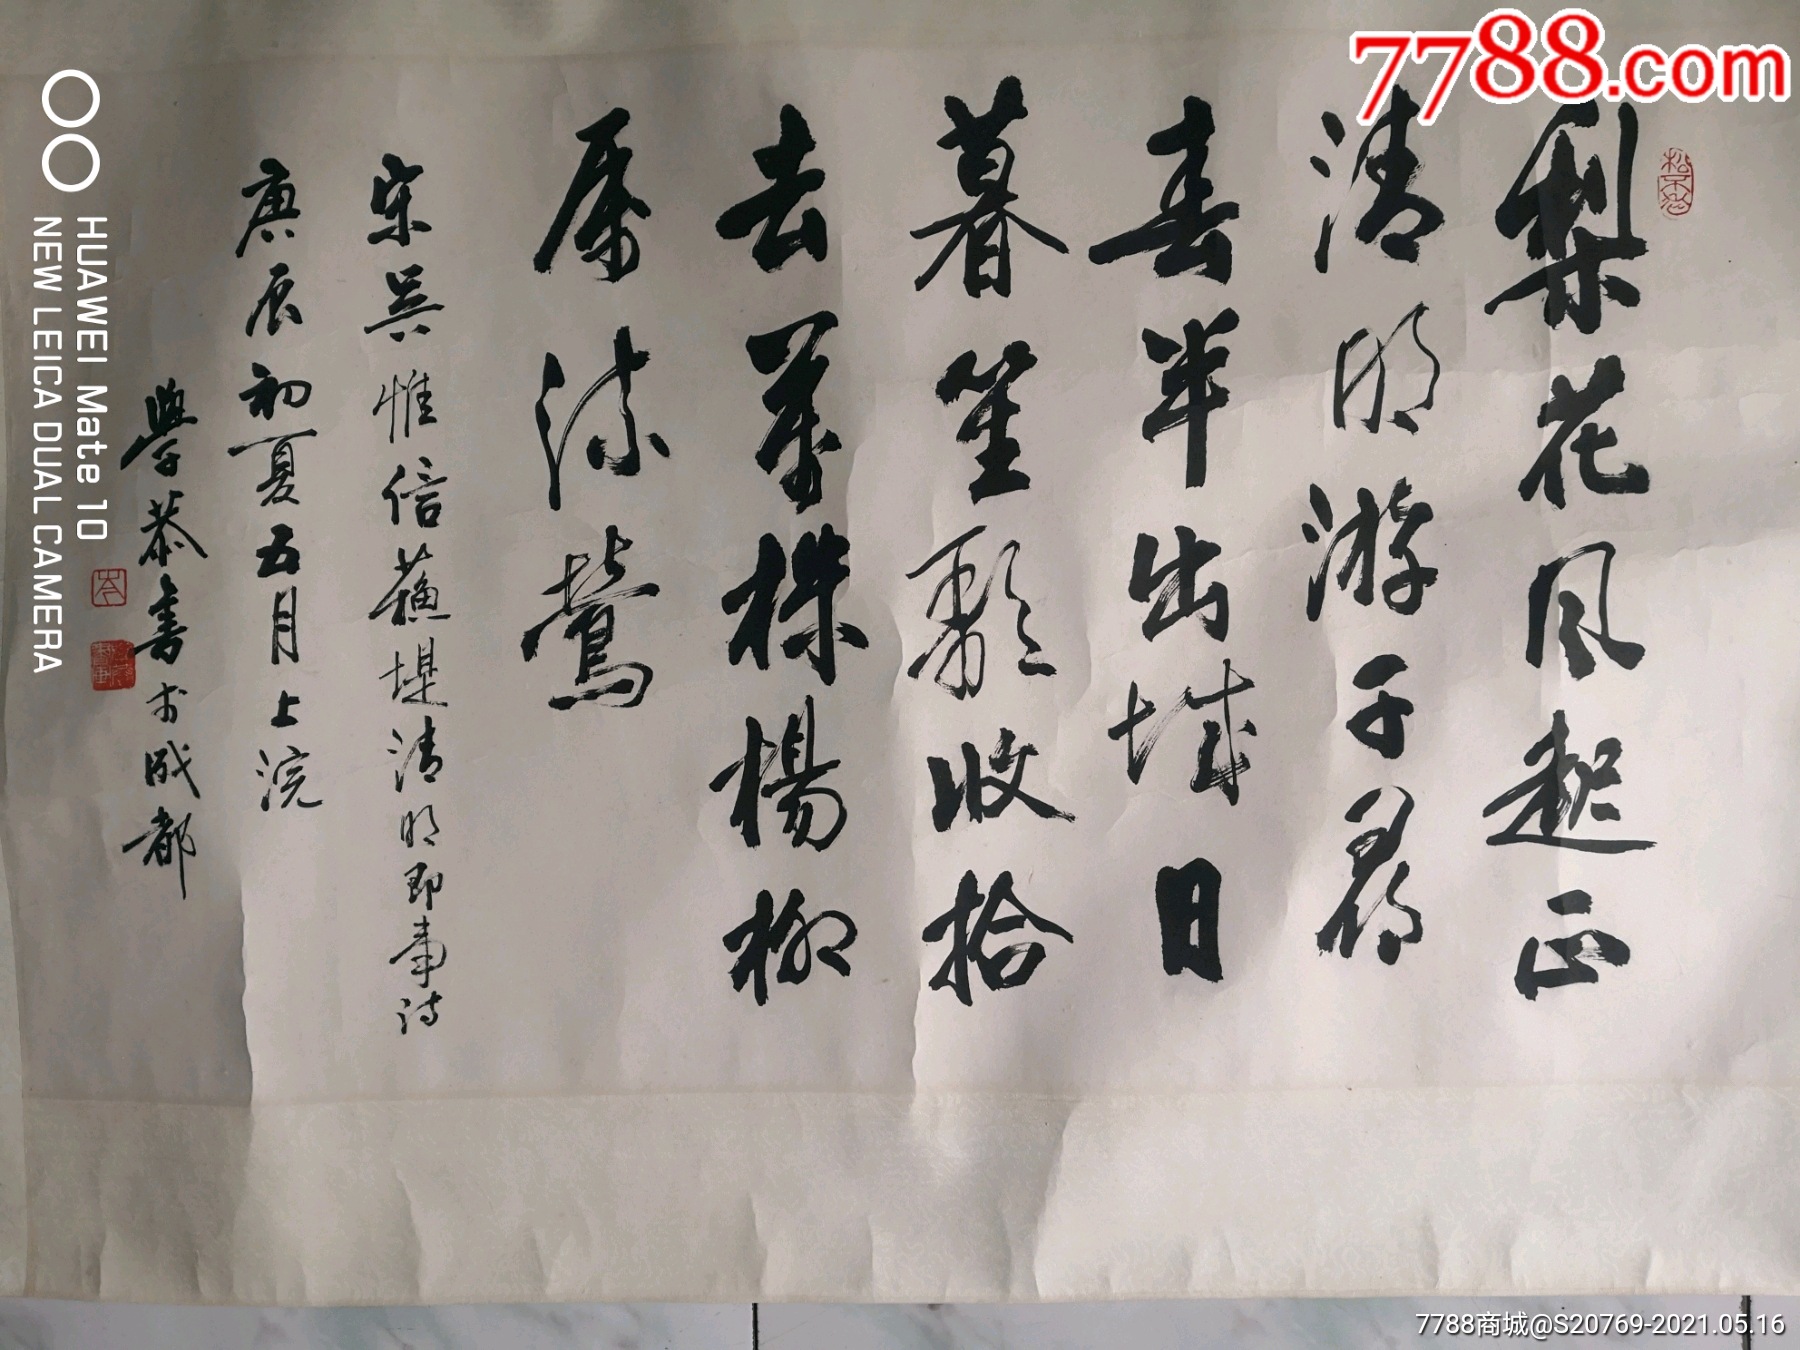 7788.com
梨花風起正
清明游子尋
春半出城日
暮笙歌收拾
去萬株楊柳
屬流鶯
宋吳惟信蘇堤清明即事诗
庚辰初夏五月上浣
學恭書于成都
HUAWEI Mate 10
NEW LEICA DUAL CAMERA
7788商城@S20769-2021.05.16